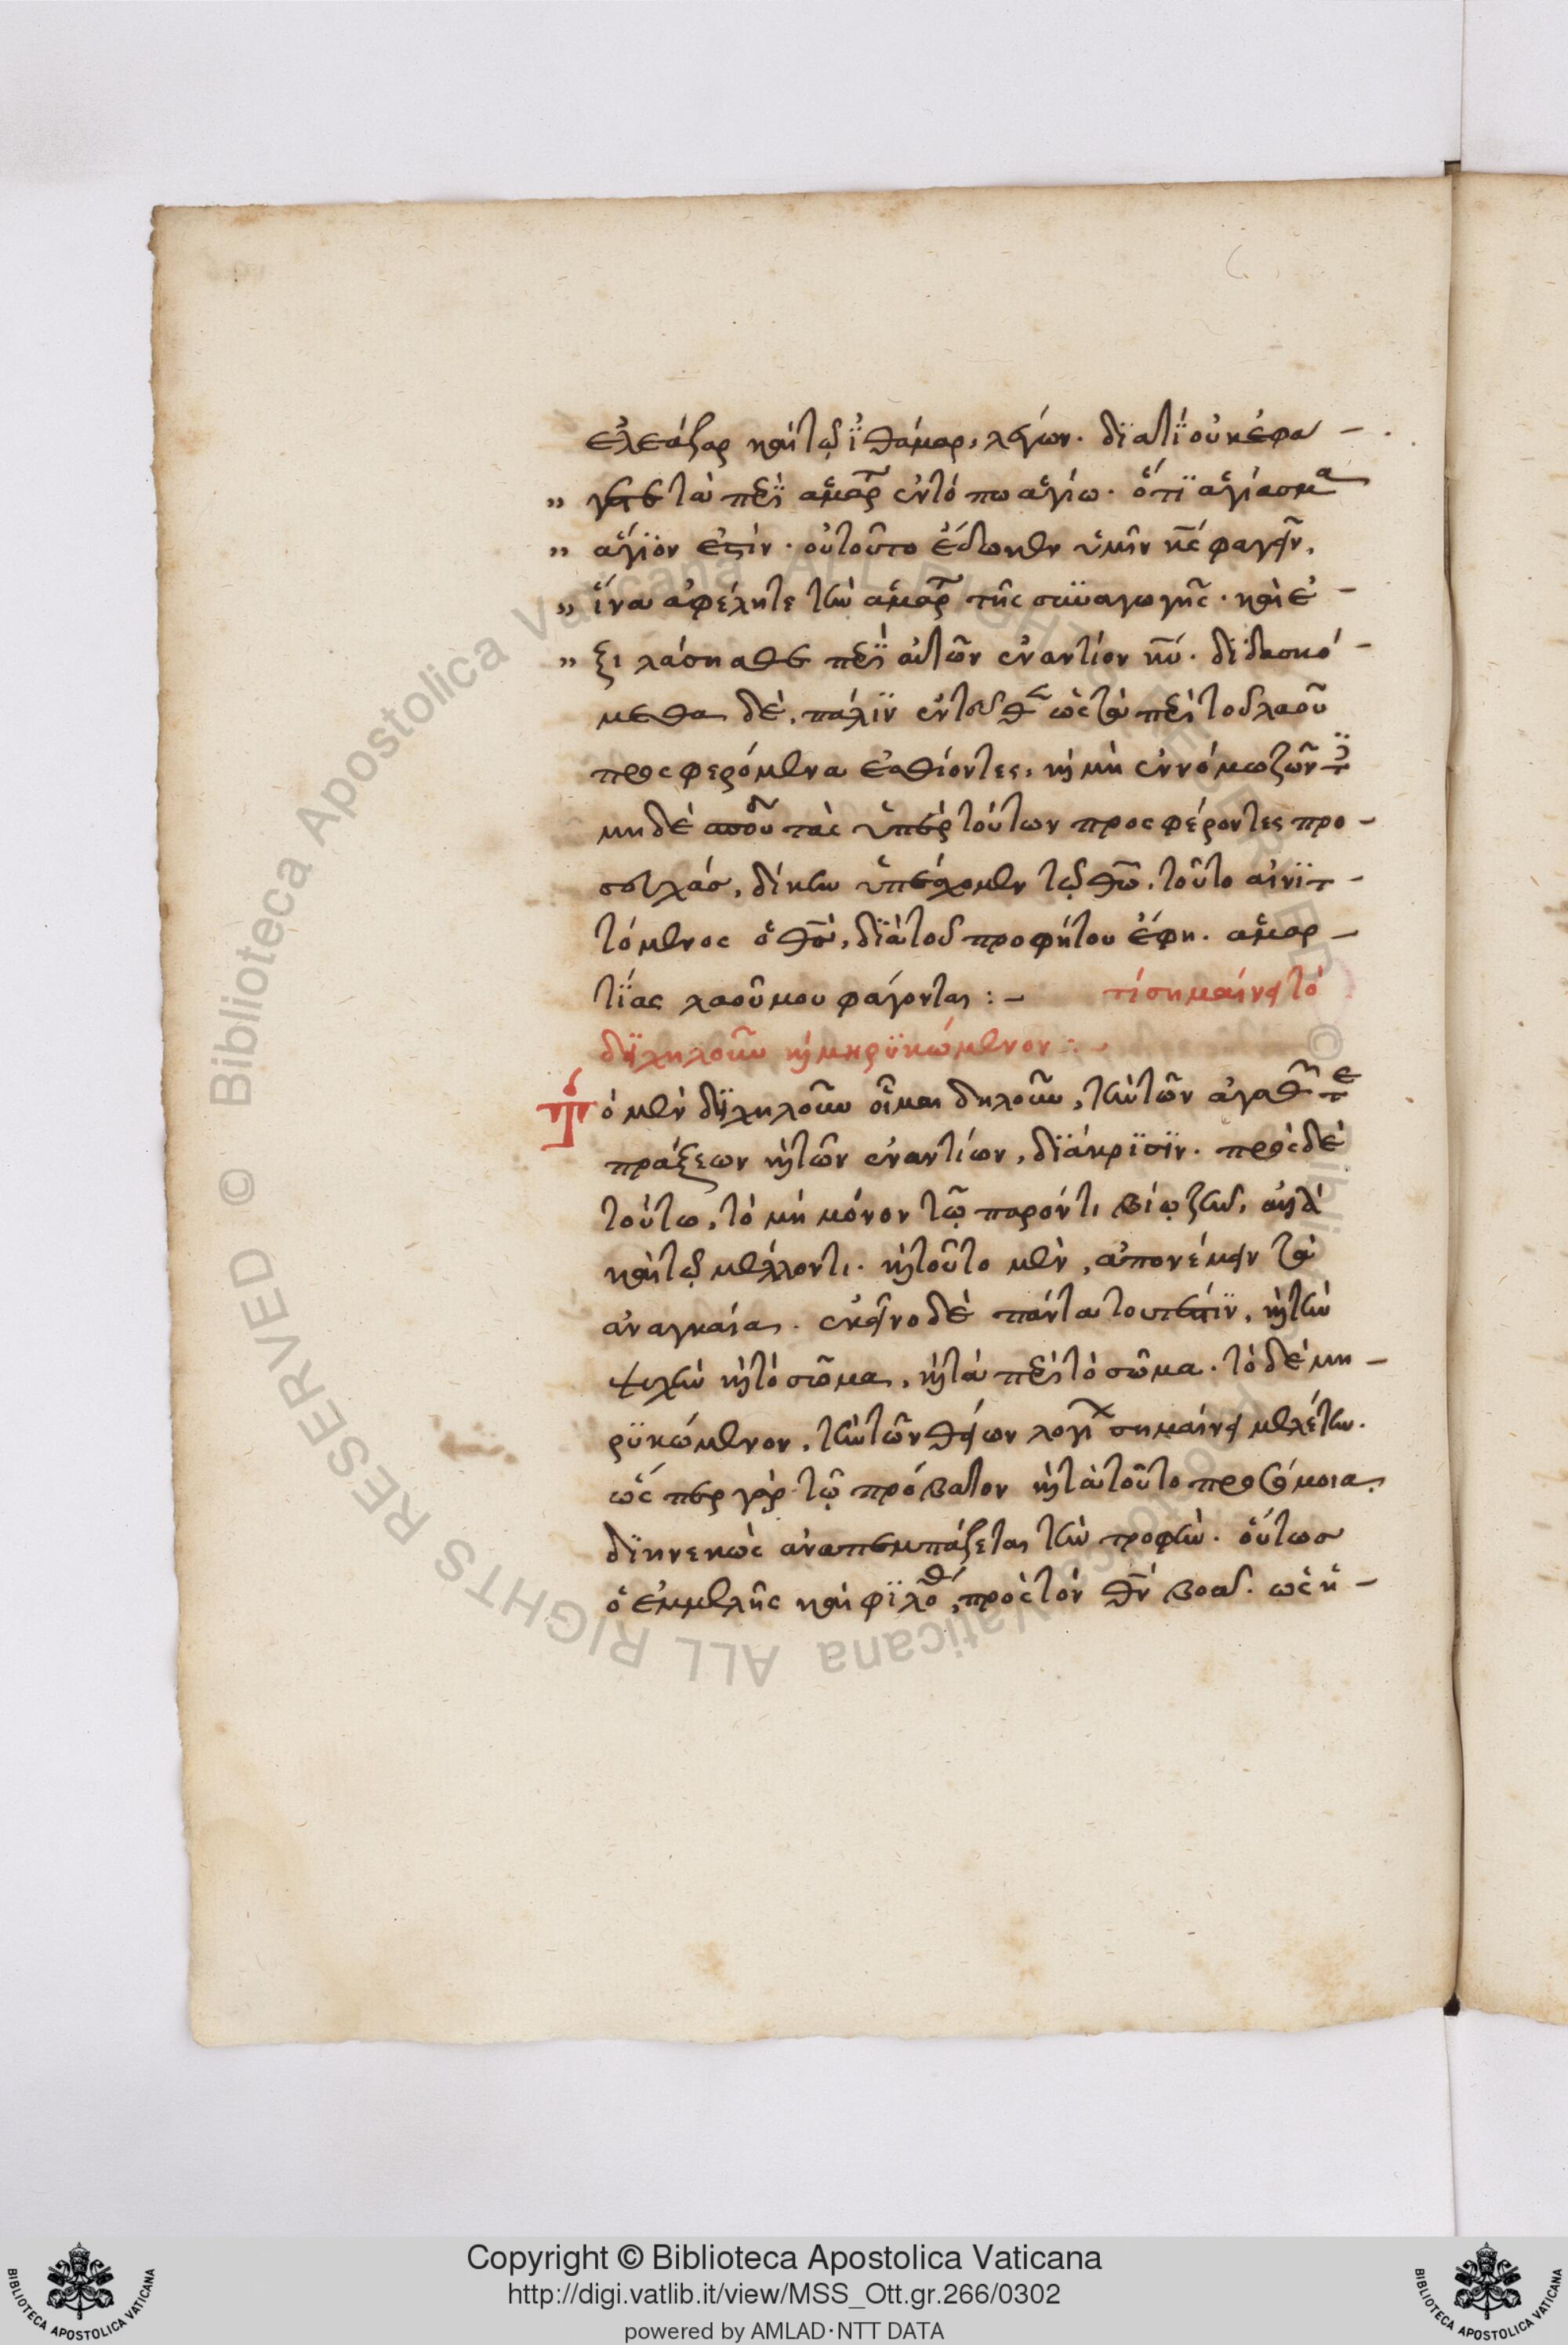 ἐλεάζαρ καὶ τῶ ἰθάμαρ, λέγων. διατί οὐκ ἐφα –
„ γετε τὰ περὶ ἁμαρτ ἐν τόπω ἁγίω. ὅτι ἁγίασμα
„ ἅγιόν ἐστιν. οὐ τοῦτο ἔδωκεν ὑμῖν κς φαγεῖν,
„ ἵνα ἀφέλητε τὴν ἁμαρτ τῆς συναγωγῆς. καὶ ἐ –
„ ξιλάσησθε περὶ αὐτῶν ἐναντίον κυ. διδασκό –
μεθα δὲ, πάλιν ἐντεῦθεν ὡς τὰ περὶ τοῦ λαοῦ
προσφερόμενα ἐσθίοντες, καὶ μὴ ἐννόμως ζῶντες
μηδὲ σπουδ τὰς ὑπὲρ τούτων προσφέροντες προ –
σευχάς, δίκην ὑπέχομεν τῶ θω. τοῦτο αἰνιτ –
τόμενος ὁ θς, διὰ τοῦ προφήτου ἔφη. ἁμαρ –
τίας λαοῦ μου φάγονται : – τί σημαίνει τὸ
διχηλοῦν καὶ μηρυκώμενον : –
Τὸ μὲν διχηλοῦν οἶμαι δηλοῦν, τὴν τῶν ἀγαθῶν τε
πράξεων καὶ τῶν ἐναντίων, διάκρισιν. πρὸς δὲ
τούτω, τὸ μὴ μόνον τῶ παρόντι βίω ζῆν, ἀλλὰ
καὶ τῶ μέλλοντι. καὶ τοῦτο μὲν, ἀπονέμειν τὰ
ἀναγκαῖα. ἐκείνο δὲ πάντα τουτέστιν, καὶ τὴν
ψυχὴν καὶ τὸ σῶμα, καὶ τὰ περὶ τὸ σῶμα. τὸ δὲ μη –
ρυκώμενον, τὴν τῶν θείων λογι σημαίνει μελέτην.
ὥσπερ γὰρ τῶ πρόβατον καὶ τὰ τούτο προσόμοια
διηνεκῶς ἀναπεμπάζεται τὴν τροφὴν. οὕτως
ὁ ἐμμελῆς καὶ φιλόθ, πρὸς τὸν θν βοᾶ. ὡς ἡ –
Copyright © Biblioteca Apostolica Vaticana
http://digi.vatlib.it/view/MSS_Ott.gr.266/0302
powered by AMLAD·NTT DATA